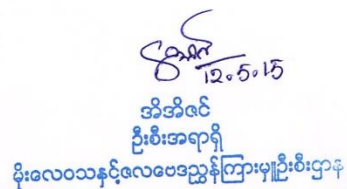 12.5.15
အိအိဇင်
ဦးစီးအရာရှိ
မိုးလေဝသနှင့်ဇလဗေဒညွှန်ကြားမှုဦးစီးဌာန